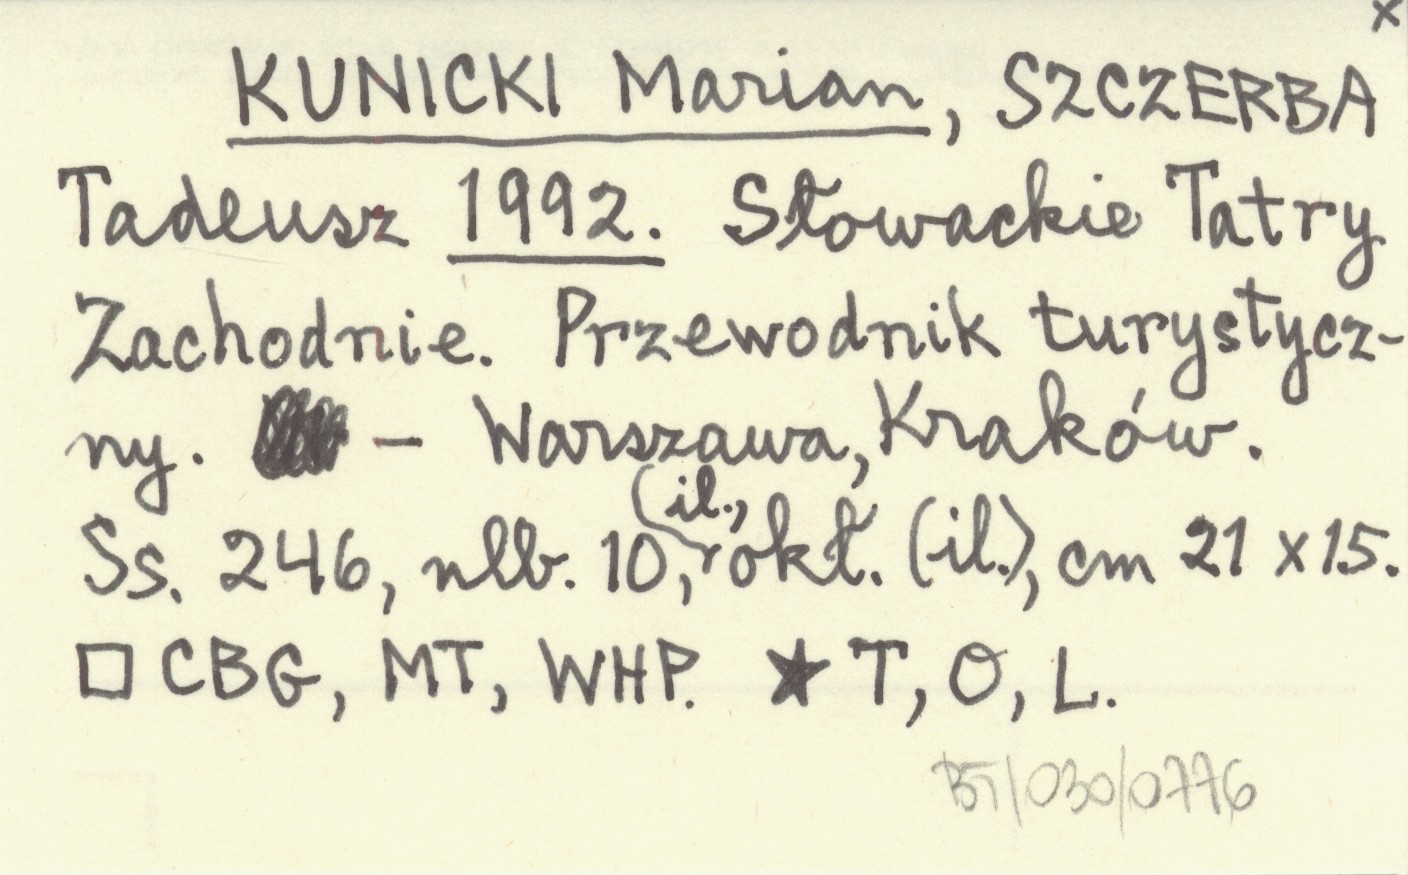 x
KUNICKI Marian, SZCZERBA
Tadeusz 1992. Słowackie Tatry
Zachodnie. Przewodnik turystycz-
ny. – Warszawa, Kraków.
Ss. 246, nlb. 10, (il., okł. (il.), cm 21 x 15.
□ CBG, MT, WHP. ★ T, O, L.
BT/030/0776